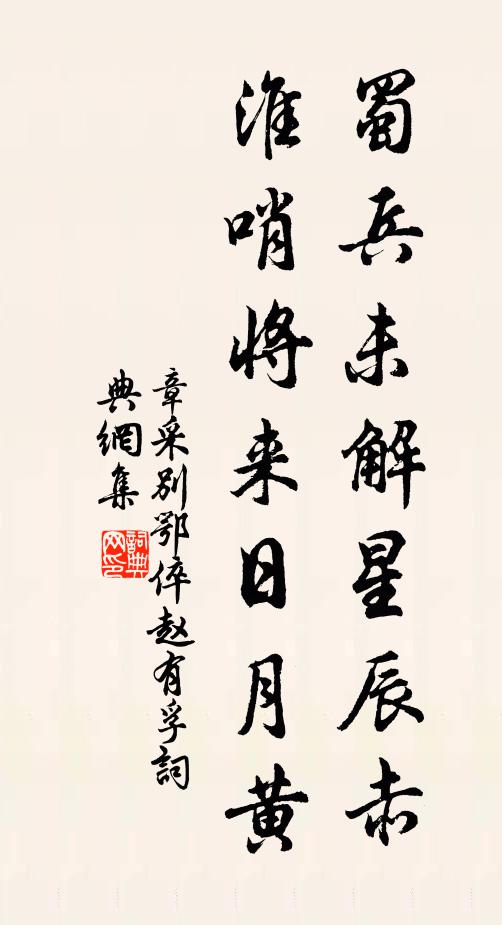 蜀兵未解星辰赤
淮哨将来日月黄
章采别鄂倅赵有孚詞
典網集
詞典网印